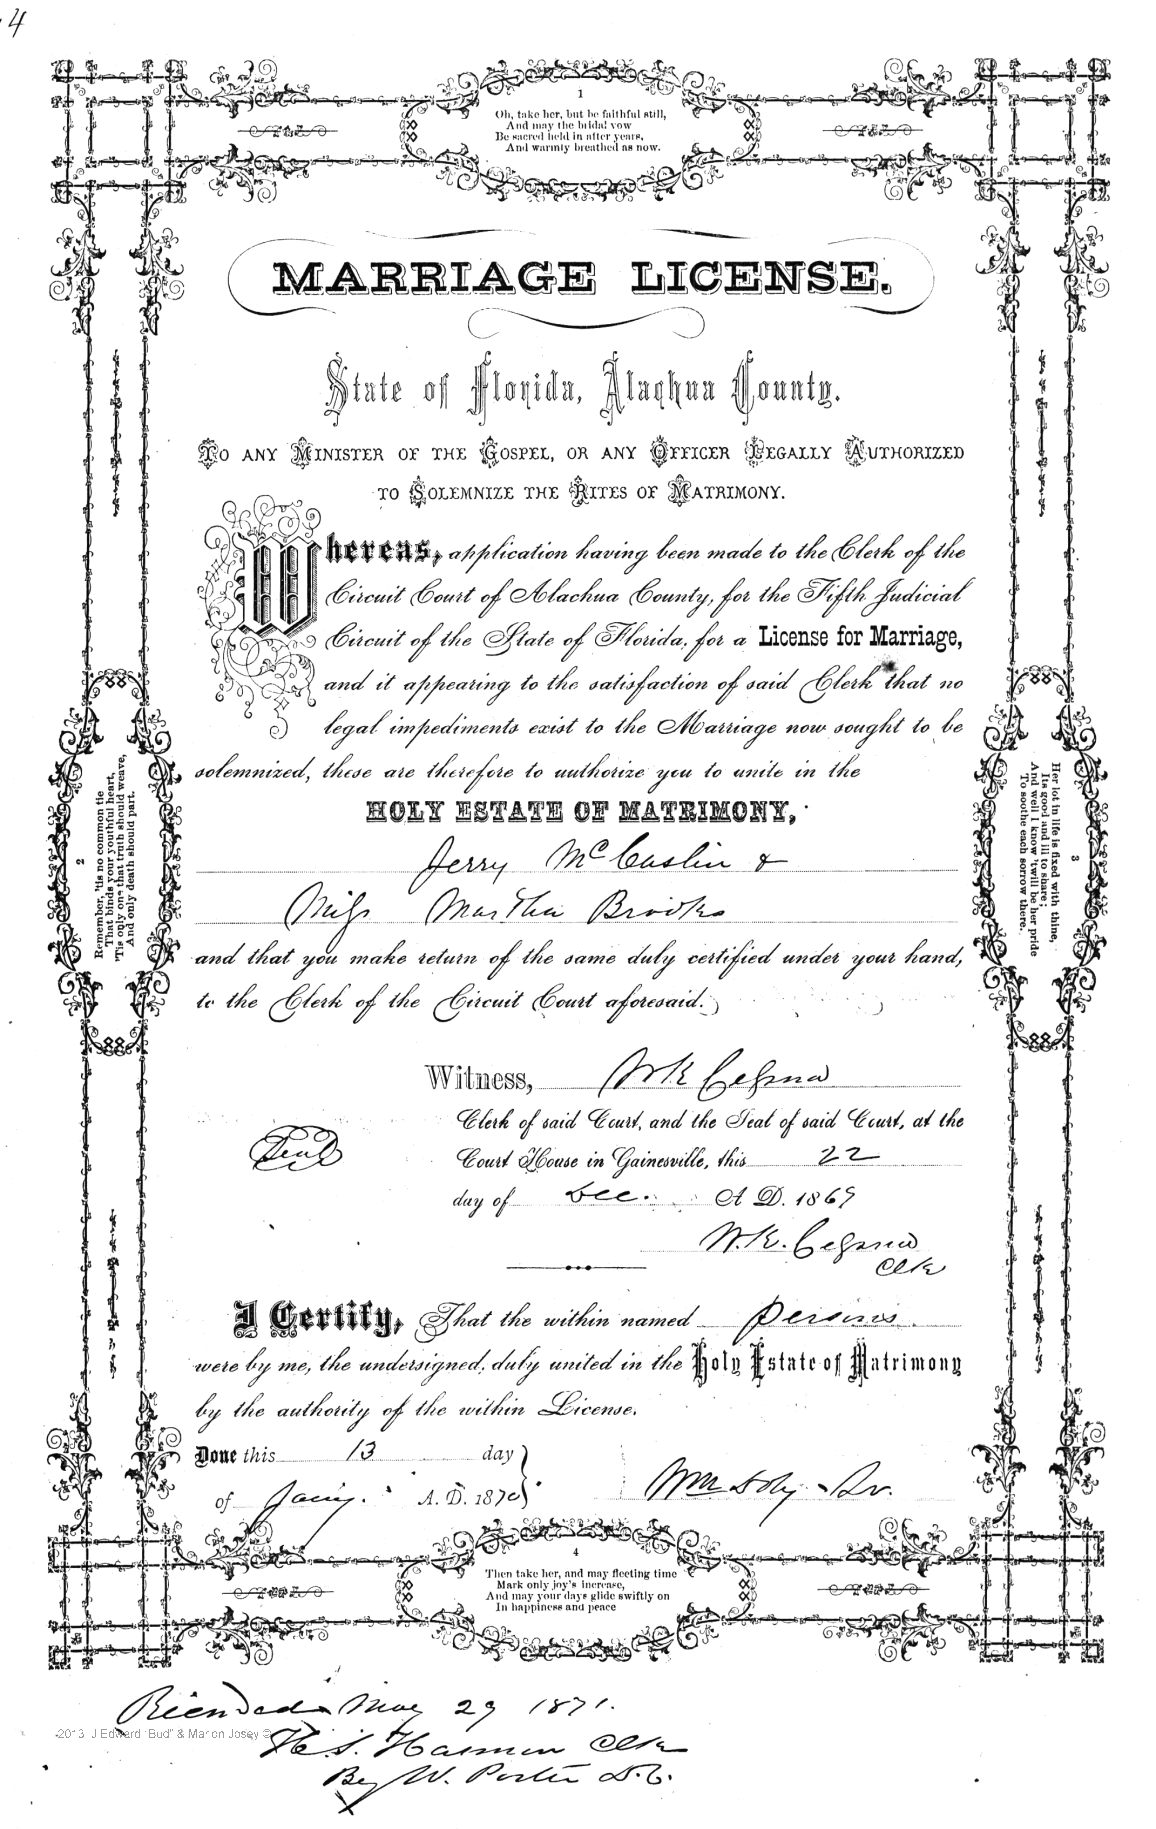 4
1
Oh, take her, but be faithful still,
And may the bridal vow
Be sacred held in after years,
And warmly breathed as now.
MARRIAGE LICENSE.
State of Florida, Alachua County.
TO ANY MINISTER OF THE GOSPEL, OR ANY OFFICER LEGALLY AUTHORIZED
TO SOLEMNIZE THE RITES OF MATRIMONY.
Whereas, application having been made to the Clerk of the
Circuit Court of Alachua County, for the Fifth Judicial
Circuit of the State of Florida, for a License for Marriage,
and it appearing to the satisfaction of said Clerk that no
legal impediments exist to the Marriage now sought to be
solemnized, these are therefore to authorize you to unite in the
HOLY ESTATE OF MATRIMONY,
Jerry McCaslin &
Miss Martha Brooks
and that you make return of the same duly certified under your hand,
to the Clerk of the Circuit Court aforesaid.
2
Remember, 'tis no common tie
That binds your youthful heart,
'Tis only one that truth should weave,
And only death should part.
3
Her lot in life is fixed with thine,
Its good and ill to share;
And well I know 'twill be her pride
To soothe each sorrow there.
Witness, W K Cessna
Clerk of said Court, and the Seal of said Court, at the
Seal
Court House in Gainesville, this 22
day of Dec. A D. 1869
W. K. Cessna
Clk
I Certify, That the within named persons
were by me, the undersigned, duly united in the Holy Estate of Matrimony
by the authority of the within License.
Done this 13 day
of Jany. A. D. 1870
Wm Sr.
4
Then take her, and may fleeting time
Mark only joy's increase,
And may your days glide swiftly on
In happiness and peace
Recorded May 29 1871.
2013 J Edward "Bud" & Marion Josey ©
H. S. Harmon Clk
By W. Porter D.C.